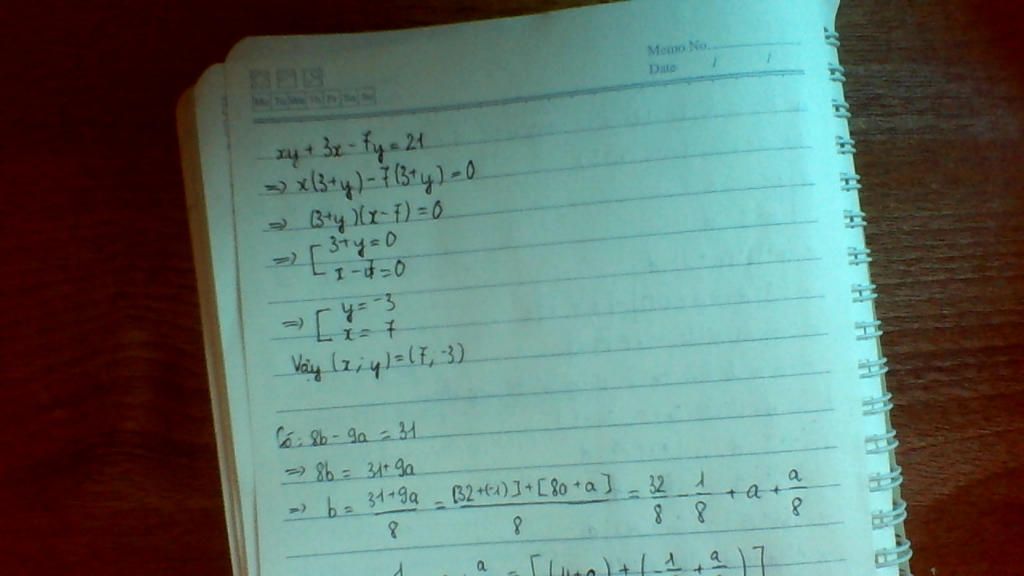 Memo No.
Date / /
Mo Tu We Th Fr Sa Su
xy + 3x - 7y = 21
=> x(3+y) - 7(3+y) = 0
=> (3+y)(x-7) = 0
=> [ 3+y = 0
x - 7 = 0
=> [ y = -3
x = 7
Vậy (x; y) = (7; -3)
Có: 8b - 9a = 31
=> 8b = 31+9a
=> b = (31+9a)/8 = ([32+(-1)]+[8a+a])/8 = 32/8 - 1/8 + a + a/8